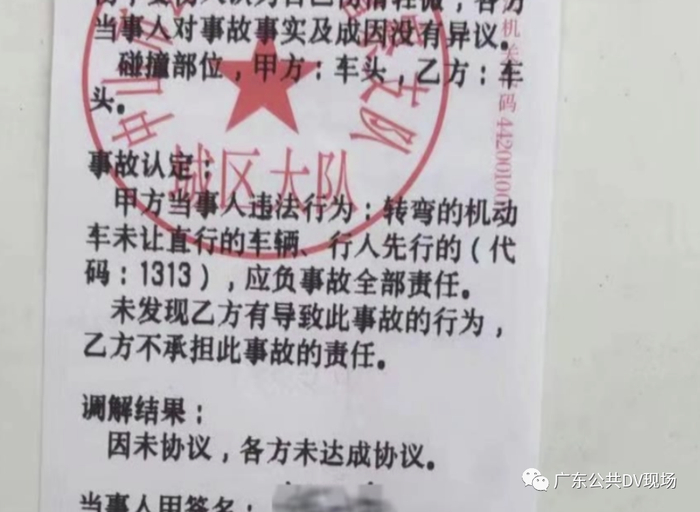 当事人对事故事实及成因没有异议。
碰撞部位，甲方：车头，乙方：车
头。
事故认定：
甲方当事人违法行为：转弯的机动
车未让直行的车辆、行人先行的（代
码：1313），应负事故全部责任。
未发现乙方有导致此事故的行为，
乙方不承担此事故的责任。
调解结果：
因未协议，各方未达成协议。
当事人甲签名：
城区大队
机关
码 4420010
广东公共DV现场